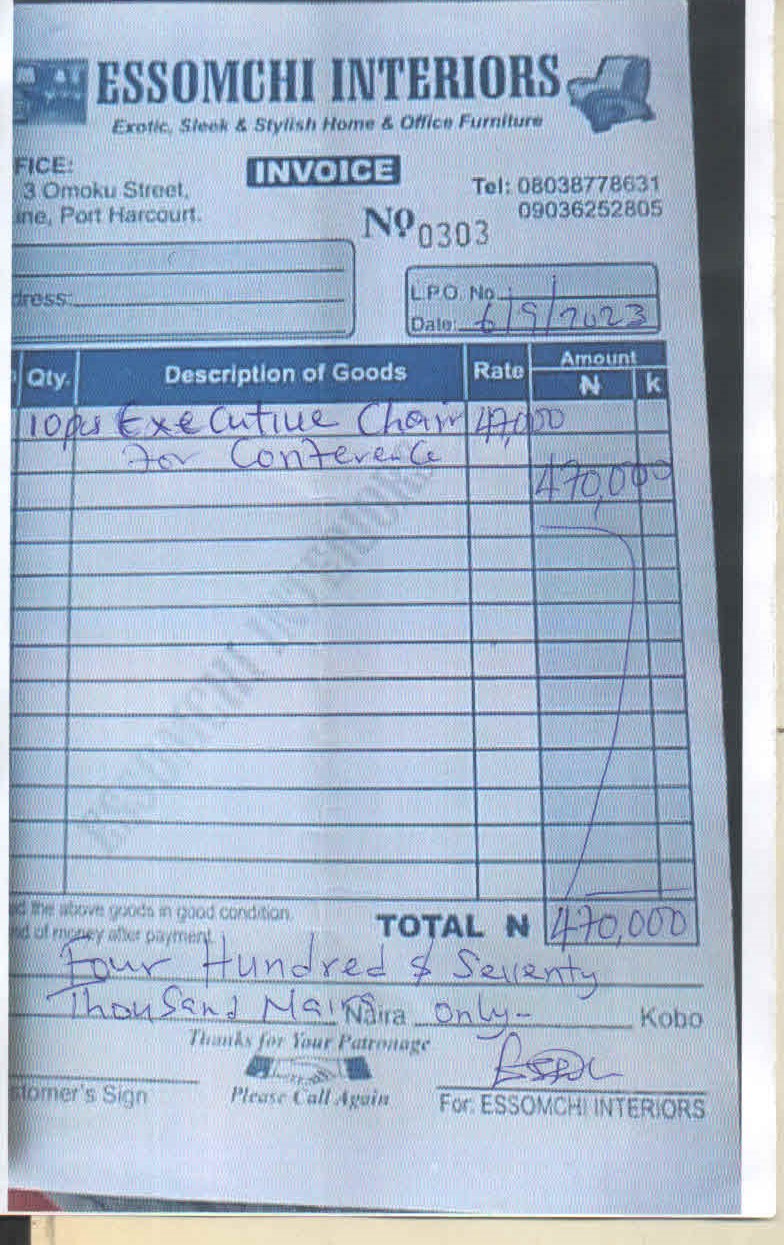 ESSOMCHI INTERIORS
Exotic, Sleek & Stylish Home & Office Furniture
FICE:
INVOICE
3 Omoku Street,
ine, Port Harcourt.
Tel: 08038778631
09036252805
Nº 0303
dress:
L.P.O. No
Date: 6/9/2023
Qty. Description of Goods Rate Amount
N k
10pcs Executive Chair 47,000
for Conference
470,000
ESSOMCHI INTERIORS
ed the above goods in good condition.
nd of money after payment
TOTAL N 470,000
Four Hundred & Seventy
Thousand Naira Naira Only- Kobo
Thanks for Your Patronage
Please Call Again
stomer's Sign
For: ESSOMCHI INTERIORS